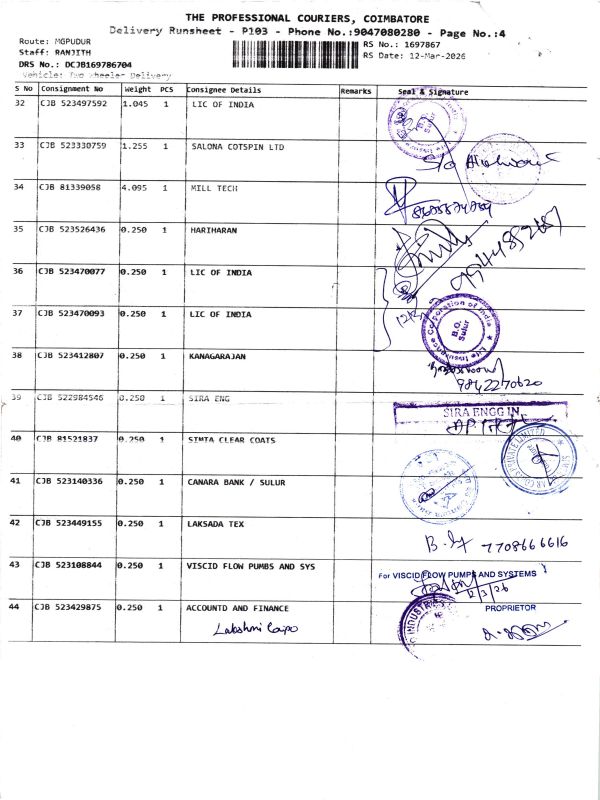 THE PROFESSIONAL COURIERS, COIMBATORE
Delivery Runsheet - P103 - Phone No.:9047080280 - Page No.:4
Route: MGPUDUR
Staff: RANJITH
DRS No.: DCJB169786704
Vehicle: Two Wheeler Delivery
RS No.: 1697867
RS Date: 12-Mar-2026
S No Consignment No Weight PCS Consignee Details Remarks Seal & Signature
32 CJB 523497592 1.045 1 LIC OF INDIA
33 CJB 523330759 1.255 1 SALONA COTSPIN LTD
34 CJB 81339058 4.095 1 MILL TECH
35 CJB 523526436 0.250 1 HARIHARAN
36 CJB 523470077 0.250 1 LIC OF INDIA
37 CJB 523470093 0.250 1 LIC OF INDIA
Life Insurance Corporation of India
B.O.
Sulur
38 CJB 523412807 0.250 1 KANAGARAJAN
9842270620
39 CJB 522984546 0.250 1 SIRA ENG
SIRA ENGG IN
40 CJB 81521837 0.250 1 SIMTA CLEAR COATS
41 CJB 523140336 0.250 1 CANARA BANK / SULUR
42 CJB 523449155 0.250 1 LAKSADA TEX
7708666616
43 CJB 523108844 0.250 1 VISCID FLOW PUMBS AND SYS
For VISCID FLOW PUMPS AND SYSTEMS
12/3/26
PROPRIETOR
44 CJB 523429875 0.250 1 ACCOUNTD AND FINANCE
Lakshmi